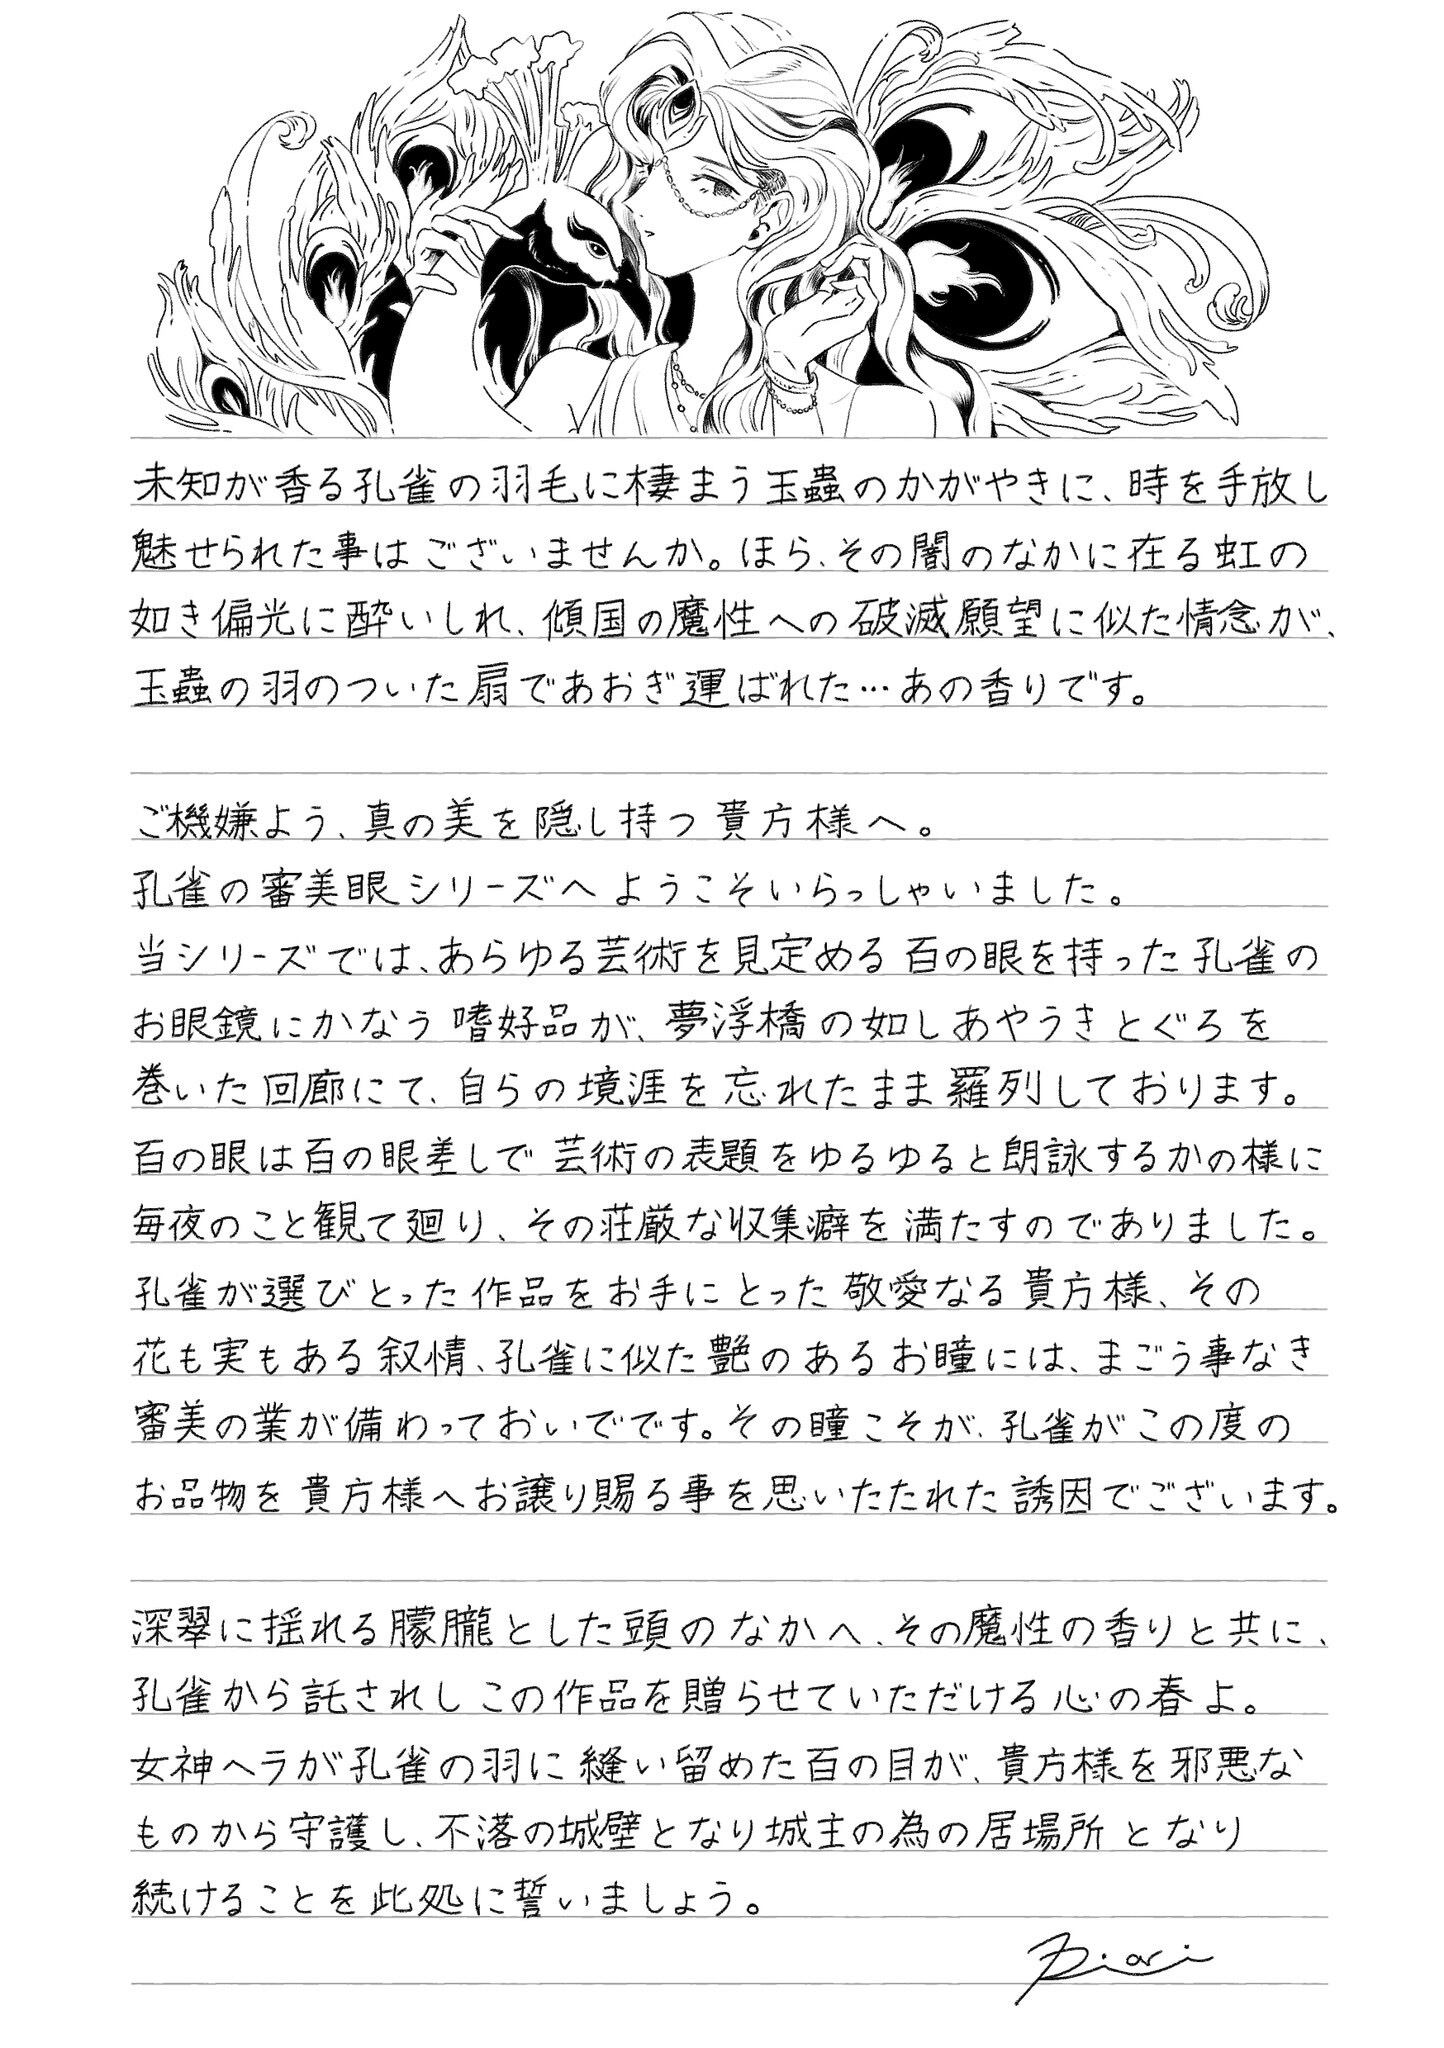 未知が香る孔雀の羽毛に棲まう玉蟲のかがやきに、時を手放し
魅せられた事はございませんか。ほら、その闇のなかに在る虹の
如き偏光に酔いしれ、傾国の魔性への破滅願望に似た情念が、
玉蟲の羽のついた扇であおぎ運ばれた…あの香りです。
ご機嫌よう、真の美を隠し持つ貴方様へ。
孔雀の審美眼シリーズへようこそいらっしゃいました。
当シリーズでは、あらゆる芸術を見定める百の眼を持った孔雀の
お眼鏡にかなう嗜好品が、夢浮橋の如しあやうきとぐろを
巻いた回廊にて、自らの境涯を忘れたまま羅列しております。
百の眼は百の眼差しで芸術の表題をゆるゆると朗詠するかの様に
毎夜のこと観て廻り、その荘厳な収集癖を満たすのでありました。
孔雀が選びとった作品をお手にとった敬愛なる貴方様、その
花も実もある叙情、孔雀に似た艶のあるお瞳には、まごう事なき
審美の業が備わっておいでです。その瞳こそが、孔雀がこの度の
お品物を貴方様へお譲り賜る事を思いたたれた誘因でございます。
深翠に揺れる朦朧とした頭のなかへ、その魔性の香りと共に、
孔雀から託されしこの作品を贈らせていただける心の春よ。
女神ヘラが孔雀の羽に縫い留めた百の目が、貴方様を邪悪な
ものから守護し、不落の城壁となり城主の為の居場所となり
続けることを此処に誓いましょう。